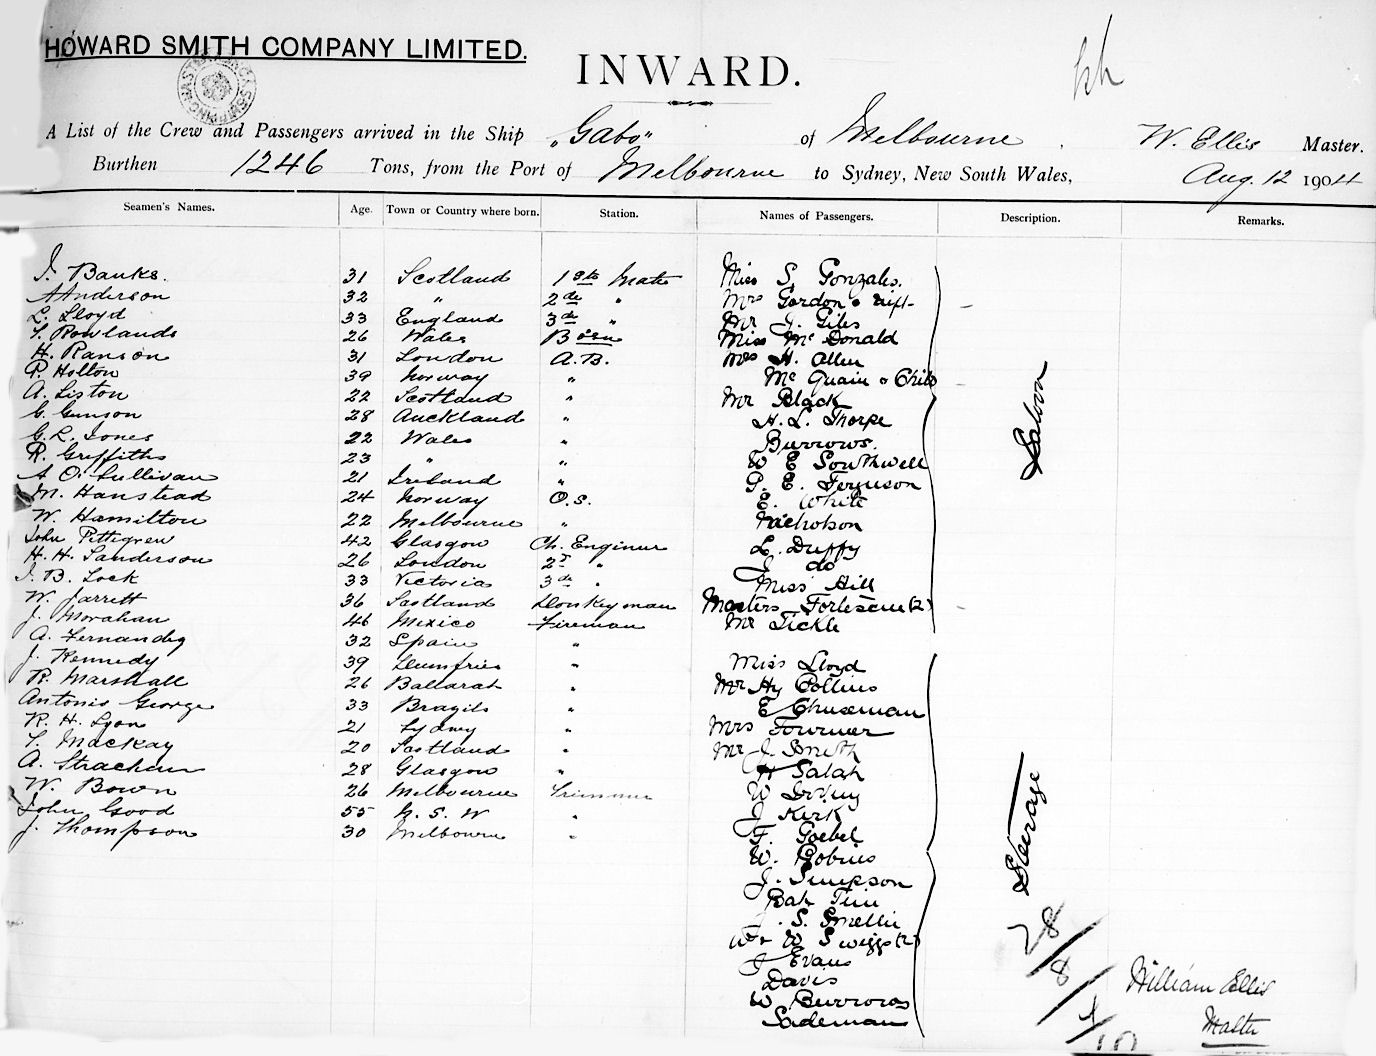 HOWARD SMITH COMPANY LIMITED.
INWARD.
A List of the Crew and Passengers arrived in the Ship "Gabo" of Melbourne, W. Ellis Master.
Burthen 1246 Tons, from the Port of Melbourne to Sydney, New South Wales, Aug. 12 1904
Seamen's Names. Age. Town or Country where born. Station. Names of Passengers. Description. Remarks.
J. Banks. 31 Scotland 1st Mate
A Anderson 32 " 2de "
L. Lloyd 33 England 3de "
T. Rowlands 26 Wales Bosn
H. Ranson 31 London A.B.
P. Holton 39 Norway "
A. Liston 22 Scotland "
G. Gunson 28 Auckland "
G. L. Jones 22 Wales "
R. Griffiths 23 " "
A O'Sullivan 21 Ireland "
M. Hanstead 24 Norway O.S.
W. Hamilton 22 Melbourne "
John Pettigrew 42 Glasgow Ch. Engineer
H. H. Sanderson 26 London 2d "
J. B. Lock 33 Victoria 3de "
W. Jarrett 36 Scotland Donkeyman
J. Morahan 46 Mexico Fireman
A. Fernandez 32 Spain "
J. Kennedy 39 Dumfries "
R. Marshall 26 Ballarat "
Antonio George 33 Brazils "
R. H. Lyon 21 Sydney "
T. Mackay 20 Scotland "
A. Strachan 28 Glasgow "
W. Bown 26 Melbourne Trimmer
John Good 55 N. S. W "
J. Thompson 30 Melbourne "
Miss S. Gonzales.
Mrs Gordon &
Mr J. Giles
Miss McDonald
Mrs H. Allen
McQuain & Child
Mr Black
H. L. Thorpe
Burrows.
W E Southwell
P. E. Ferguson
E. White
Nicholson
L. Duffy
J do
Miss Hill
Masters Fortescue (2)
Mr Tickle
Saloon
Miss Lloyd
Mr Hy Collins
E Chuseman
Mrs Fournier
Mr J. Smith
H Salah
W
J Kirk
F. Goebel
W. Robins
J. Simpson
Bah Tim
J. S. Smellie
W & W Swiggs (2)
J Evans
Davis
W Burrows
Sademan
Steerage
28/8/
William Ellis
Master